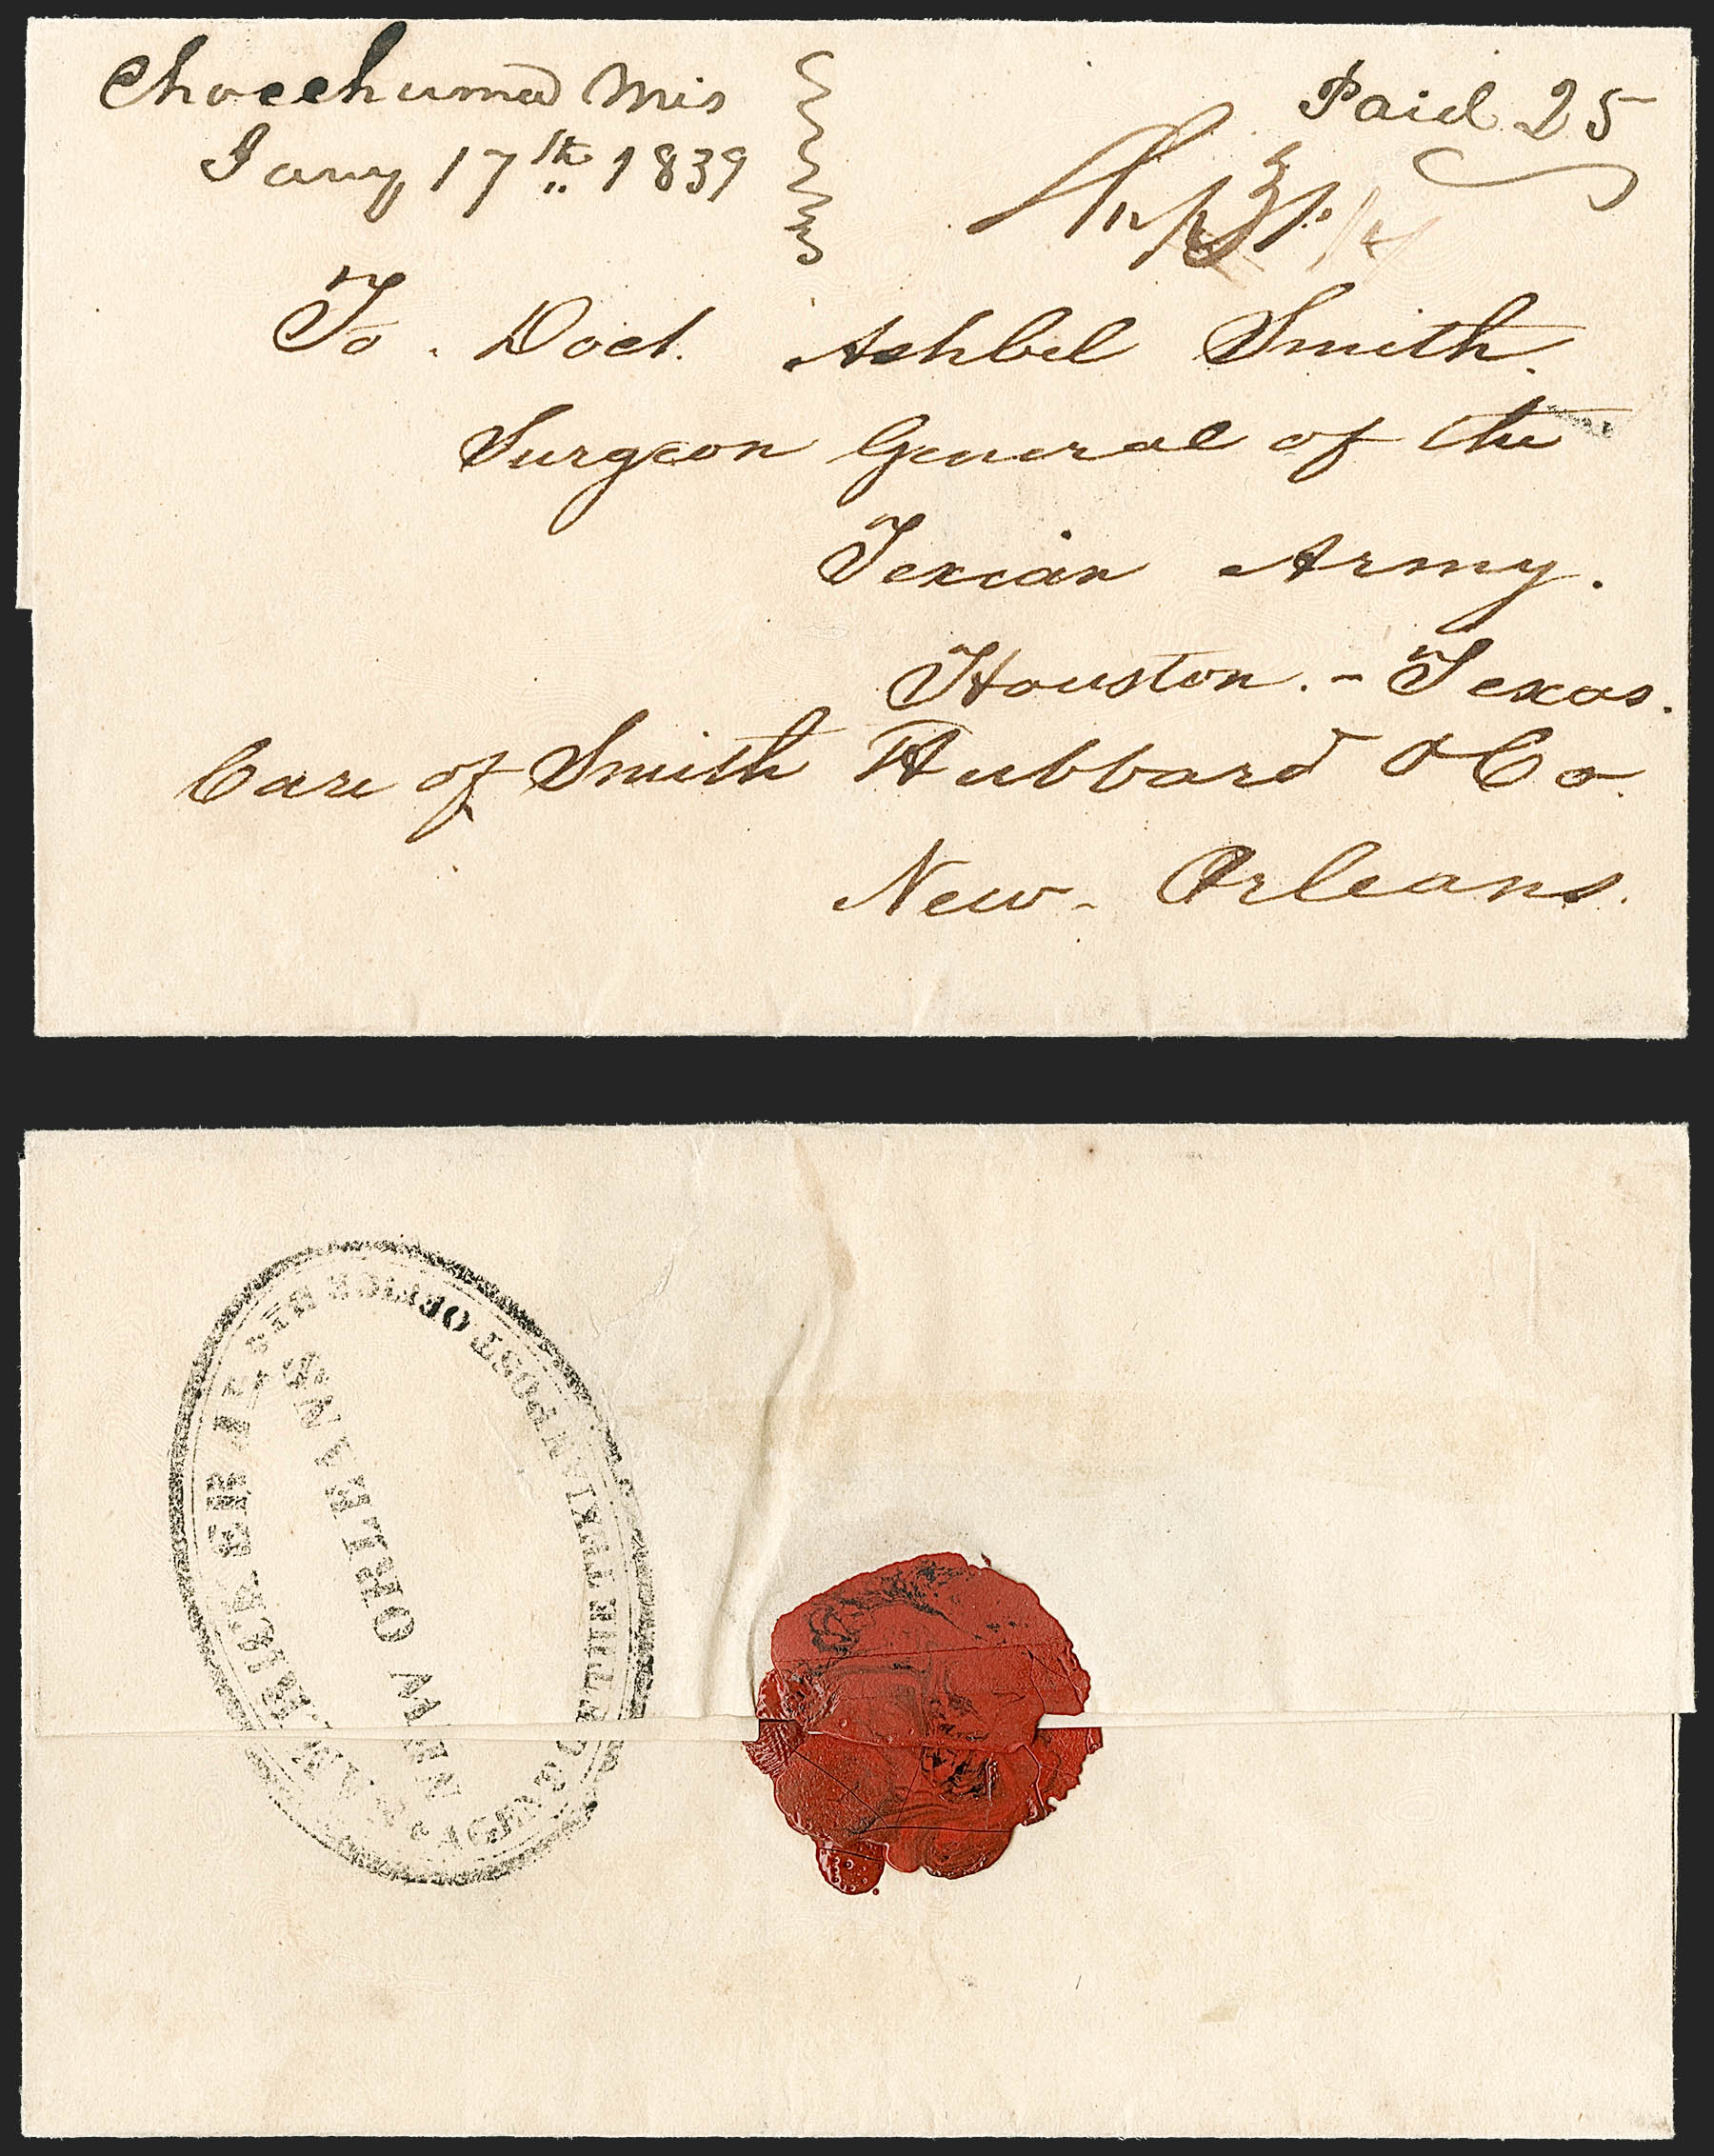 Chocchuma Mis
Jany 17th 1839
Paid 25
Ship
To. Doct. Ashbel Smith.
Surgeon General of the
Texian Army.
Houston. - Texas.
Care of Smith Hubbard & Co.
New- Orleans.
AGENT OF THE TEXIAN POST OFFICE DEP
NEW ORLEANS